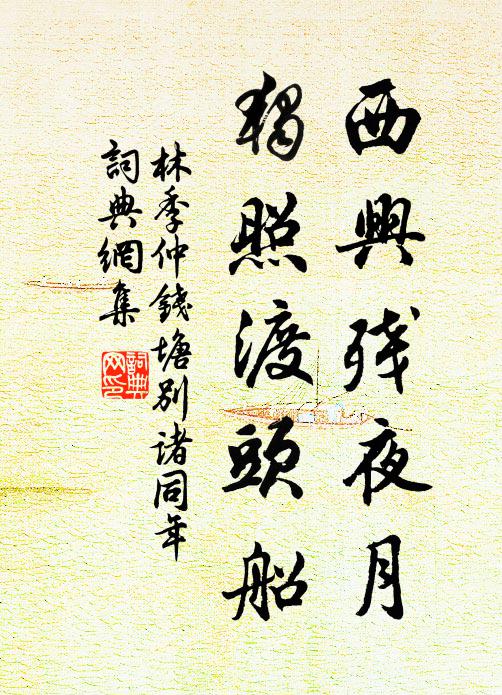 西興殘夜月
獨照渡頭船
林季仲錢塘別諸同年
詞典網集
詞典
网印